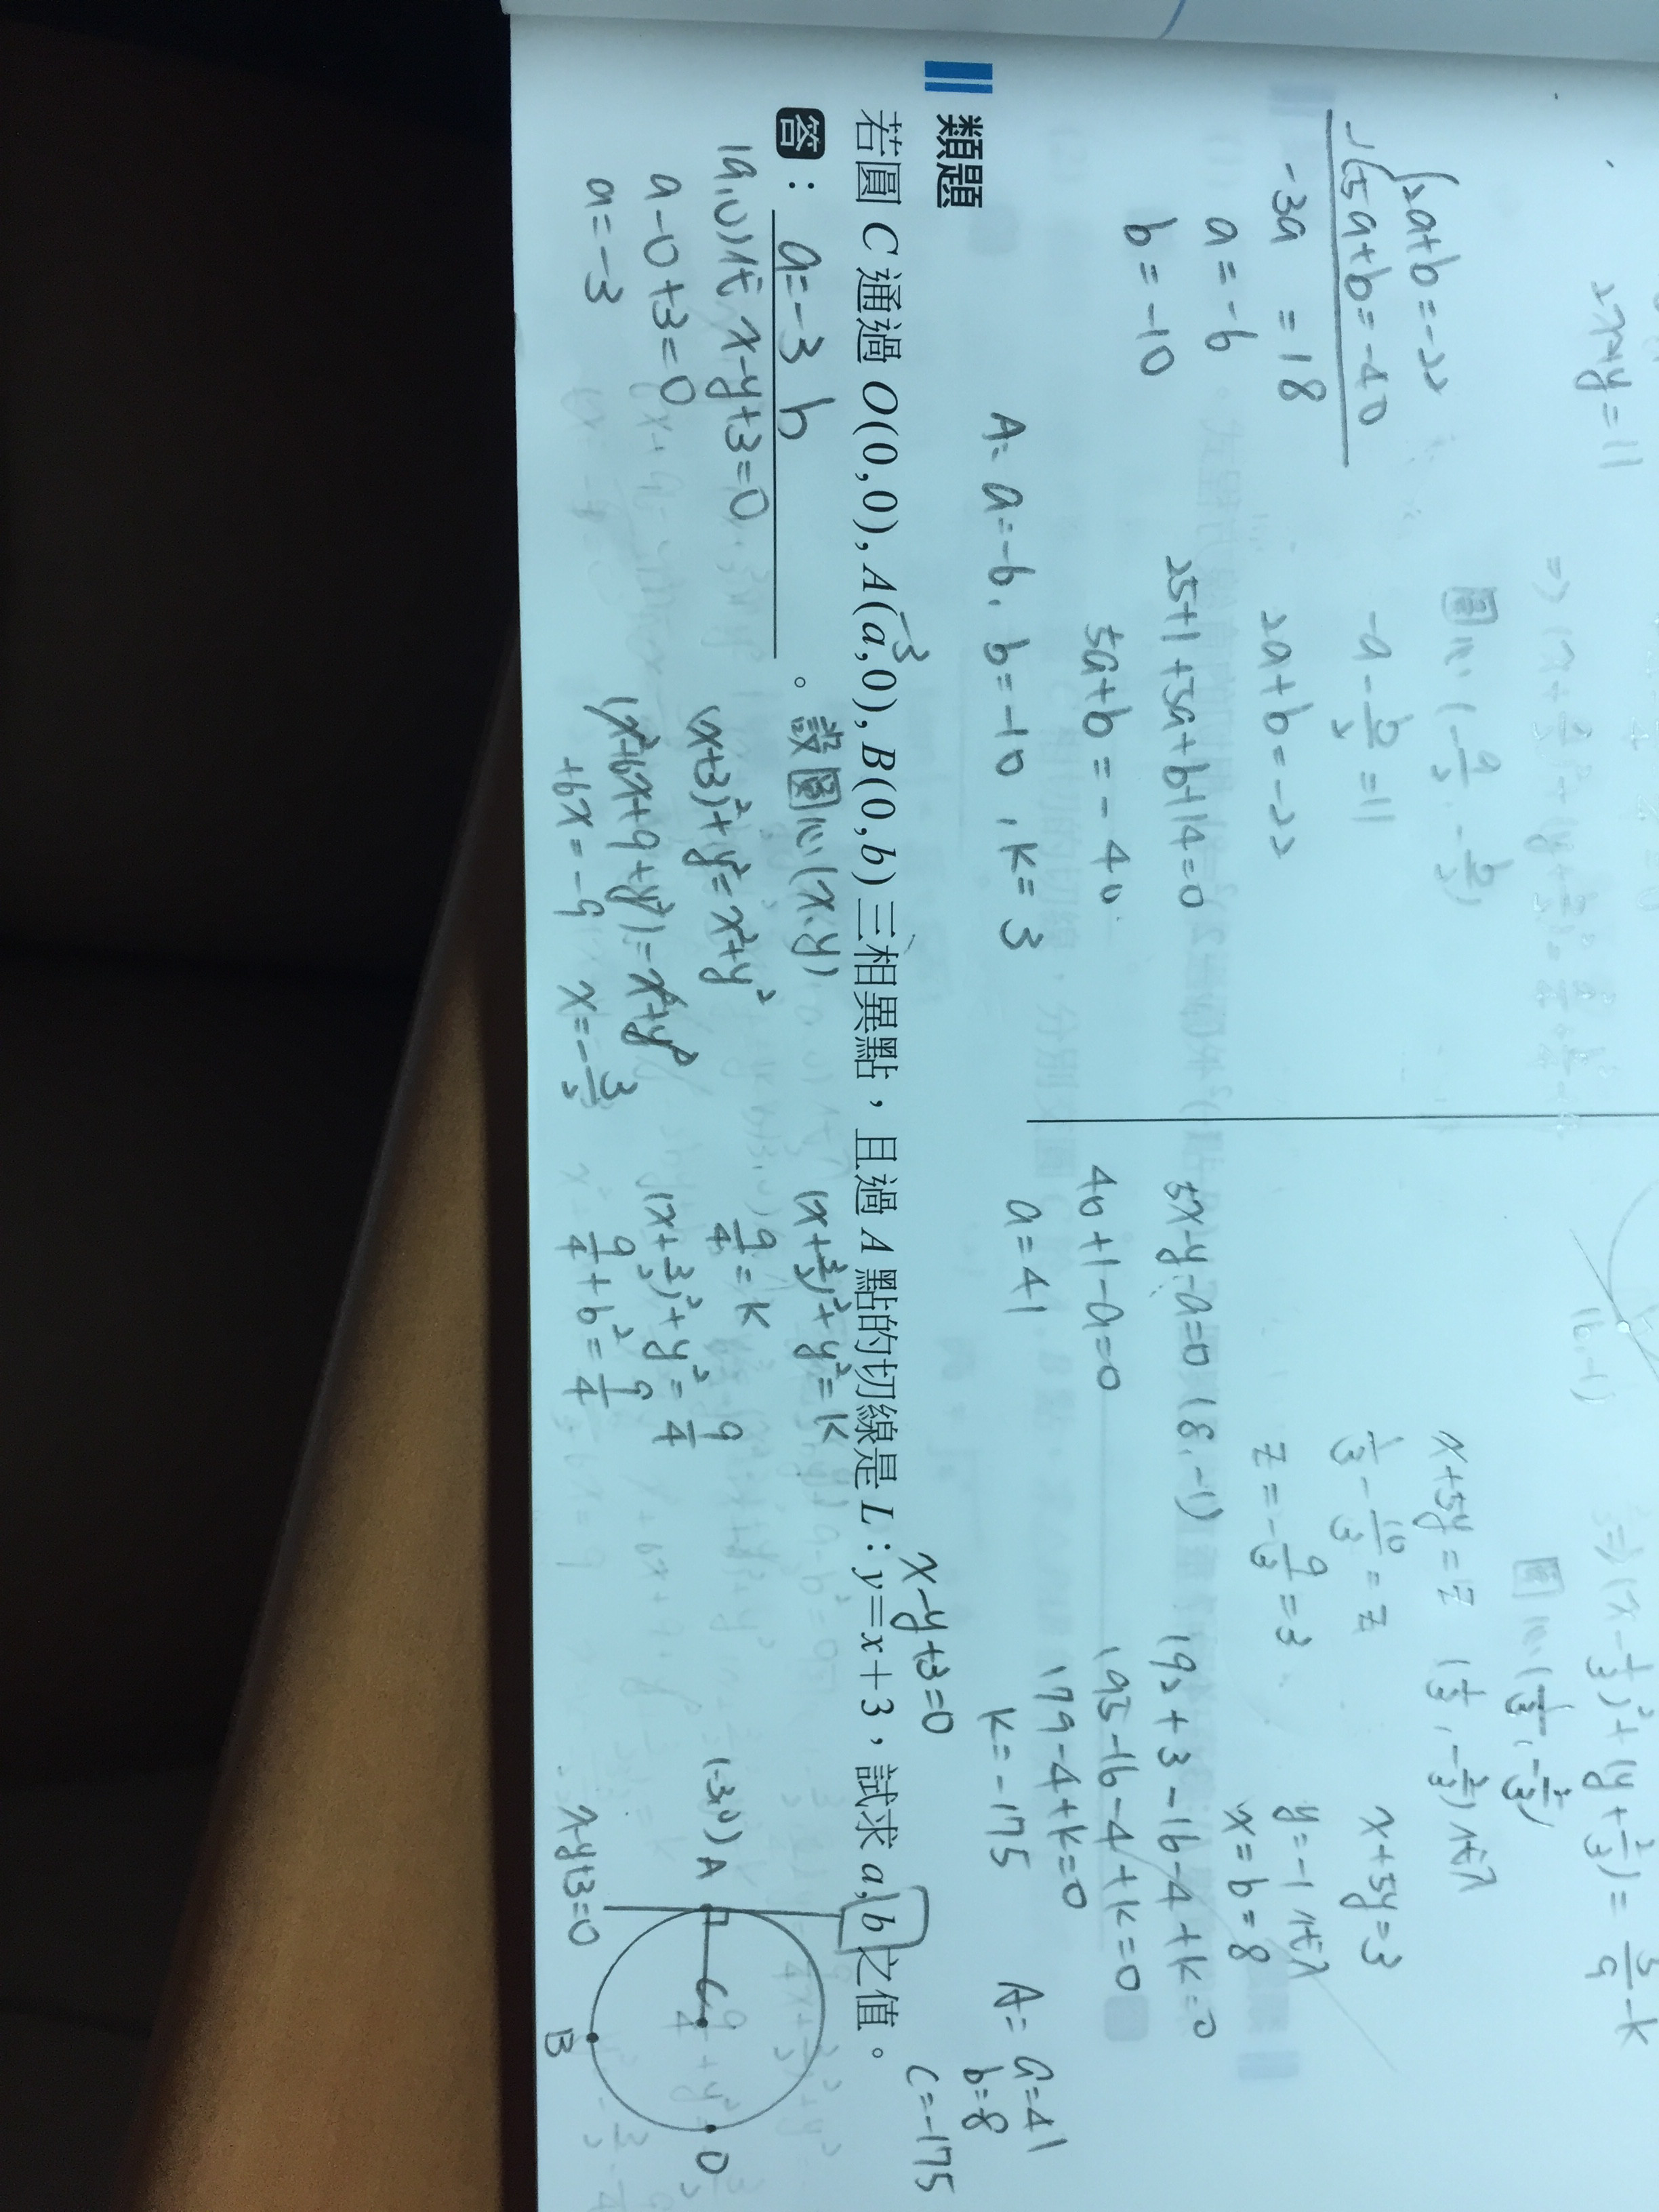 2x+y=11
2a+b=-22
-)5a+b=-40
-3a = 18
a=-6
b=-10
圓心(-a/2, -b/2)
-a-b/2=11
2a+b=-22
25+1+5a+b+14=0
5a+b=-40
A: a=-6, b=-10, k=3
圓心(1/3, -2/3)
x+5y=z (1/3, -2/3)代入
1/3-10/3=z
z=-9/3=3
x+5y=3
y=-1代入
x=b=8
5x-y-a=0 (8,-1)
40+1-a=0
a=41
192+3-16-4+k=0
195-16-4+k=0
179-4+k=0
k=-175
A= a=41
b=8
c=-175
(6,-1)
類題
x-y+3=0
-3
若圓 C 通過 O(0,0), A(a,0), B(0,b)三相異點，且過 A 點的切線是 L：y=x+3，試求 a,b 之值。
答： a=-3 b 。
(a,0)代 x-y+3=0
a-0+3=0
a=-3
設圓心(x,y)
(x+3)²+y²=x²+y²
(x²+6x+9+y²)=x²+y²
+6x=-9 x=-3/2
(x+3/2)²+y²=k
9/4=k
(x+3/2)²+y²=9/4
9/4+b²=9/4
(-3,0) A
C
O
B
x-y+3=0